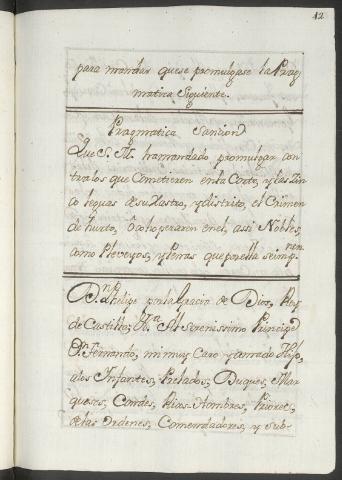 12
para mandar que se promulgase la Prag
matica Siguiente.
Pragmatica Sancion
Que S. M. ha mandado promulgar con
tra los que Cometieren en la Corte, y las Zin
co leguas de su Rastro, y distrito, el Crimen
de hurto, ô coloperaren en el, assi Nobles,
como Pleveyos, y Penas que por ella se imp.nen
D.n Phelipe por la Gracia de Dios, Rey
de Castilla, &.a Al Serenissimo Principe
D.n Fernando, mi muy Caro y amado Hijo,
a los Infantes, Prelados, Duques, Mar
queses, Condes, Ricos-Hombres, Priores,
de las Ordenes, Comendadores, y Sub-